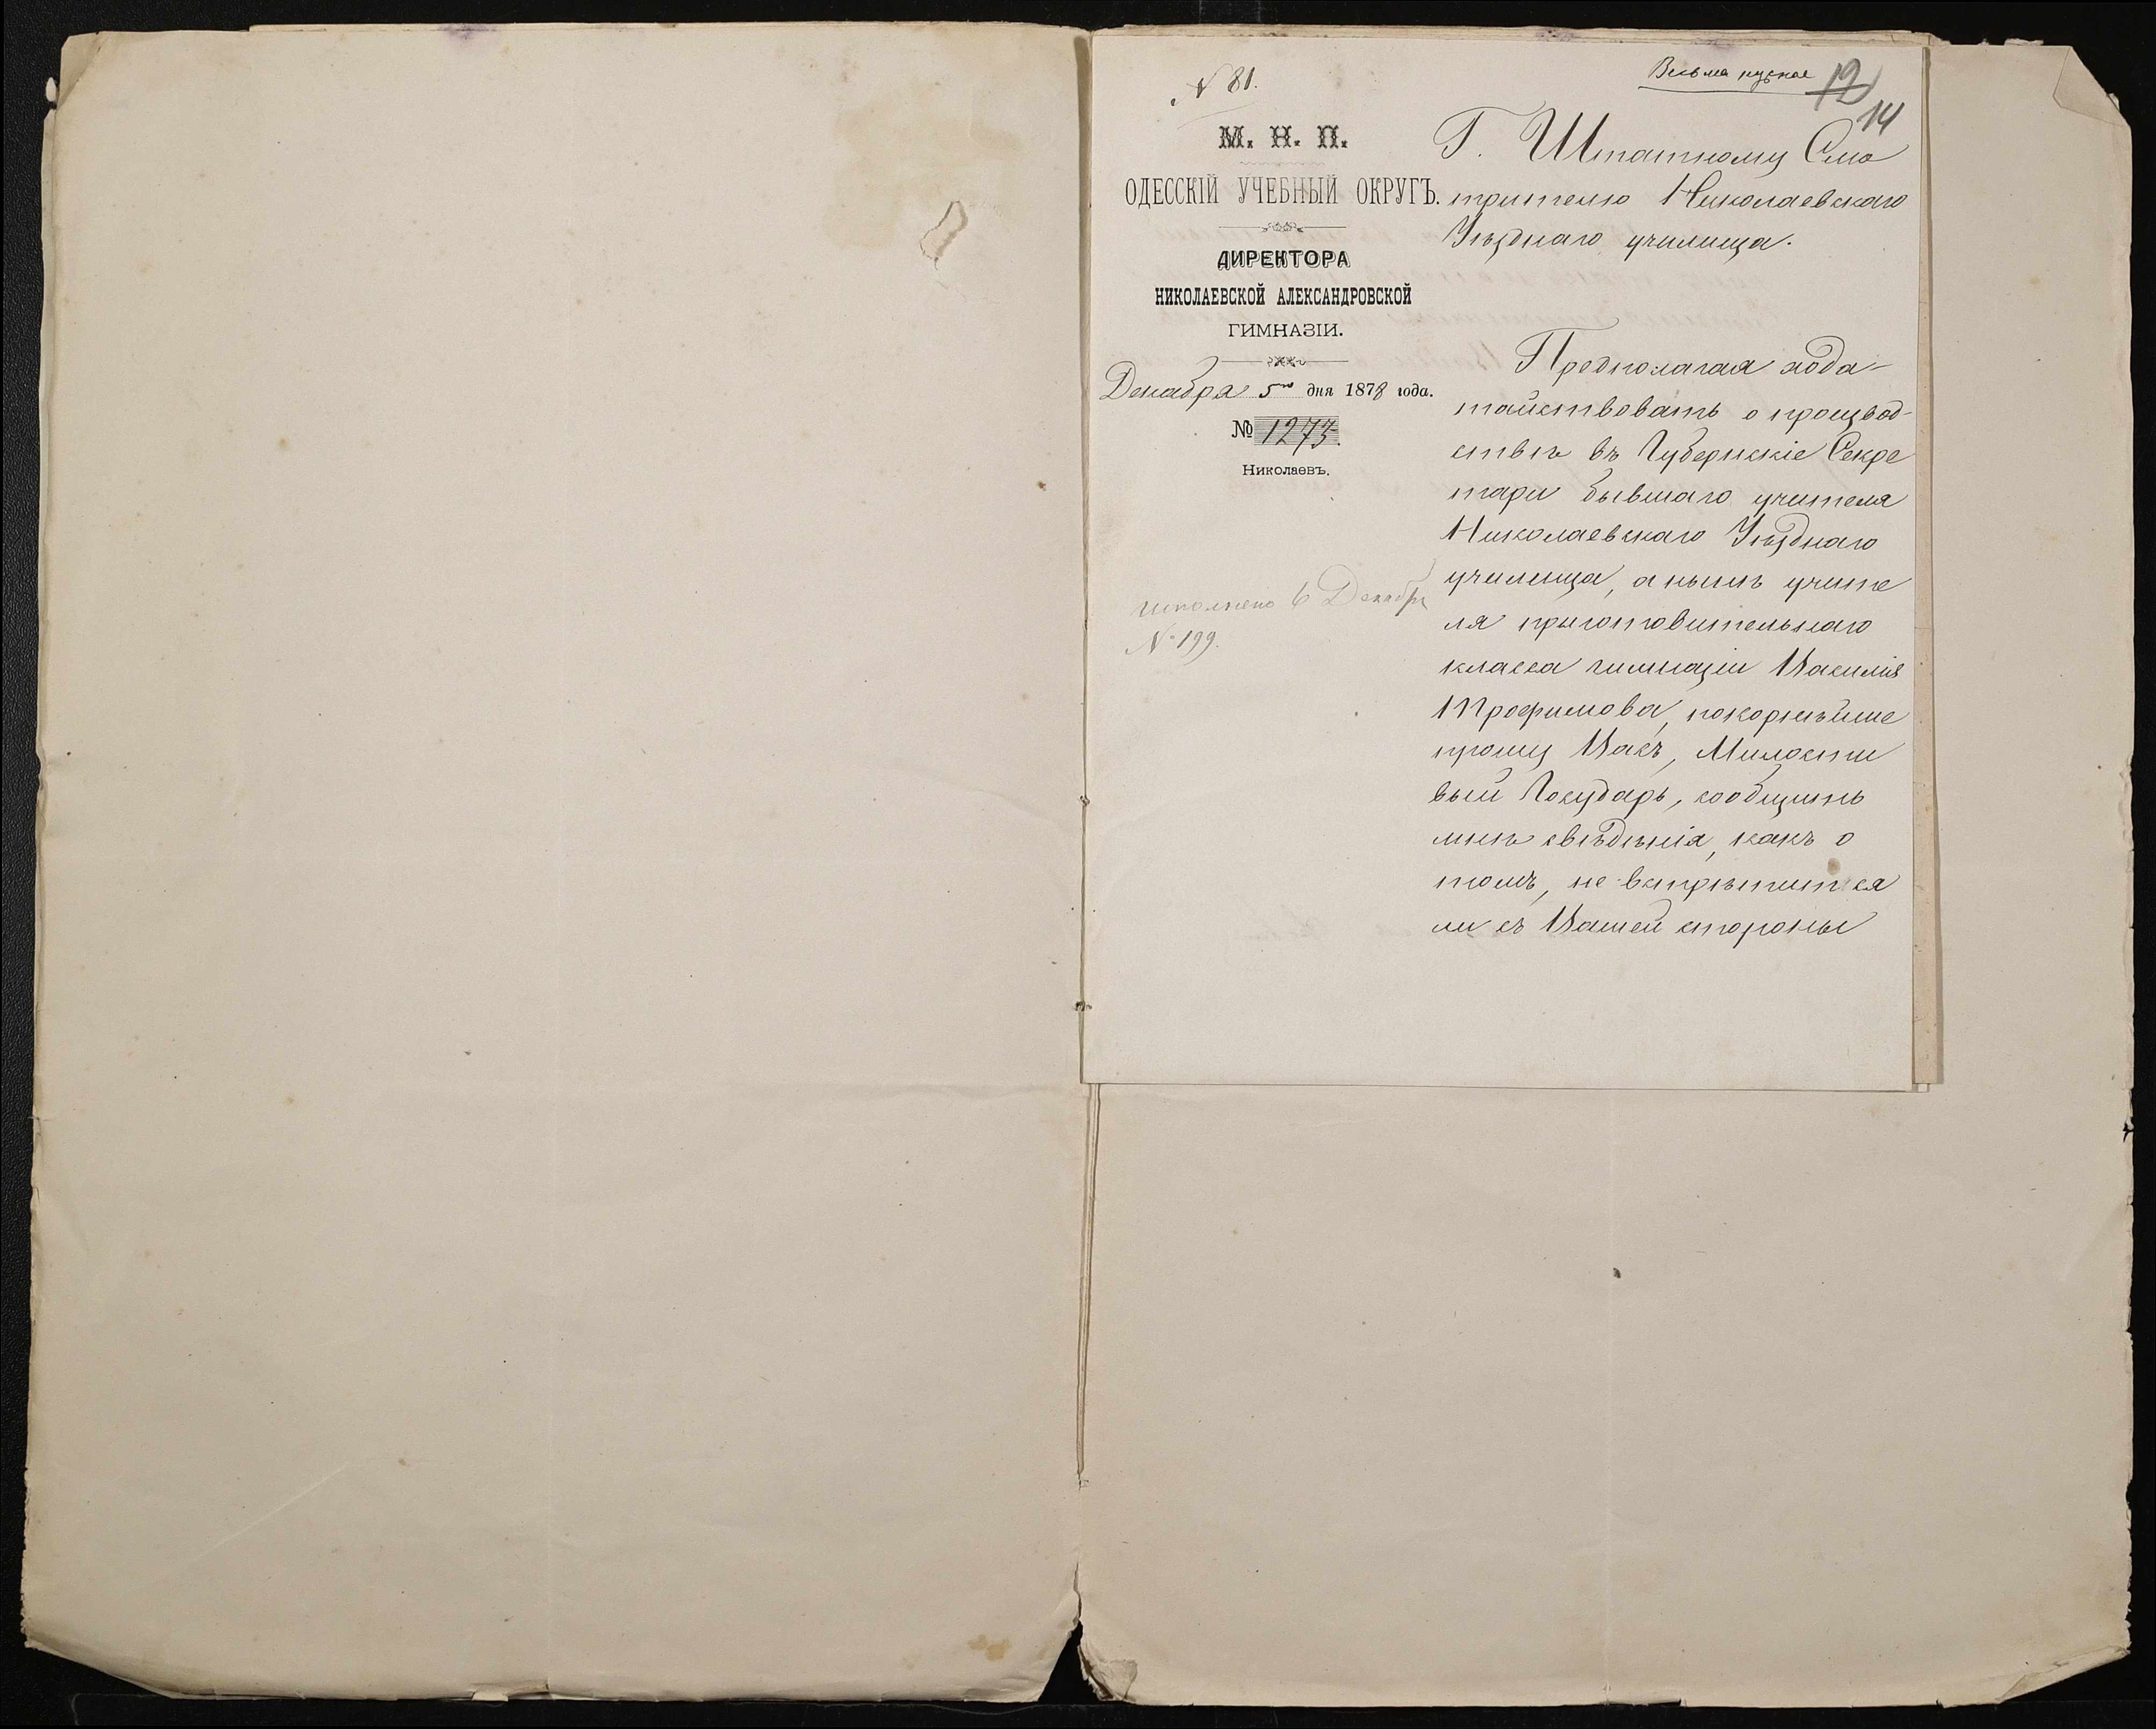 № 81.
Весьма нужное
12
14
М. Н. П.
ОДЕССКІЙ УЧЕБНЫЙ ОКРУГЪ.
ДИРЕКТОРА
НИКОЛАЕВСКОЙ АЛЕКСАНДРОВСКОЙ
ГИМНАЗІИ.
Декабря 5го дня 1878 года.
№ 1273.
Николаевъ.
исполнено 6 Декабря
№ 199.
Г. Штатному Смо
трителю Николаевскаго
Уѣзднаго училища.
Предполагая хода-
тайствовать о производ-
ствѣ въ Губернскіе Секре
тари бывшаго учителя
Николаевскаго Уѣзднаго
училища, а нынѣ учите
ля приготовительнаго
класса гимназіи Василія
Трофимова, покорнѣйше
прошу Васъ, Милости
вый Государь, сообщить
мнѣ свѣдѣнія, какъ о
томъ, не встрѣтится
ли съ Вашей стороны